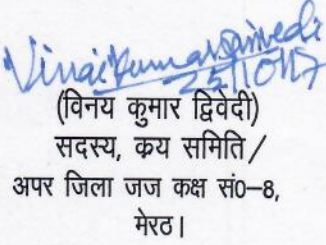 Vinai Kumar Dwivedi
25/10/17
(विनय कुमार द्विवेदी)
सदस्य, क्रय समिति/
अपर जिला जज कक्ष सं०–8,
मेरठ।